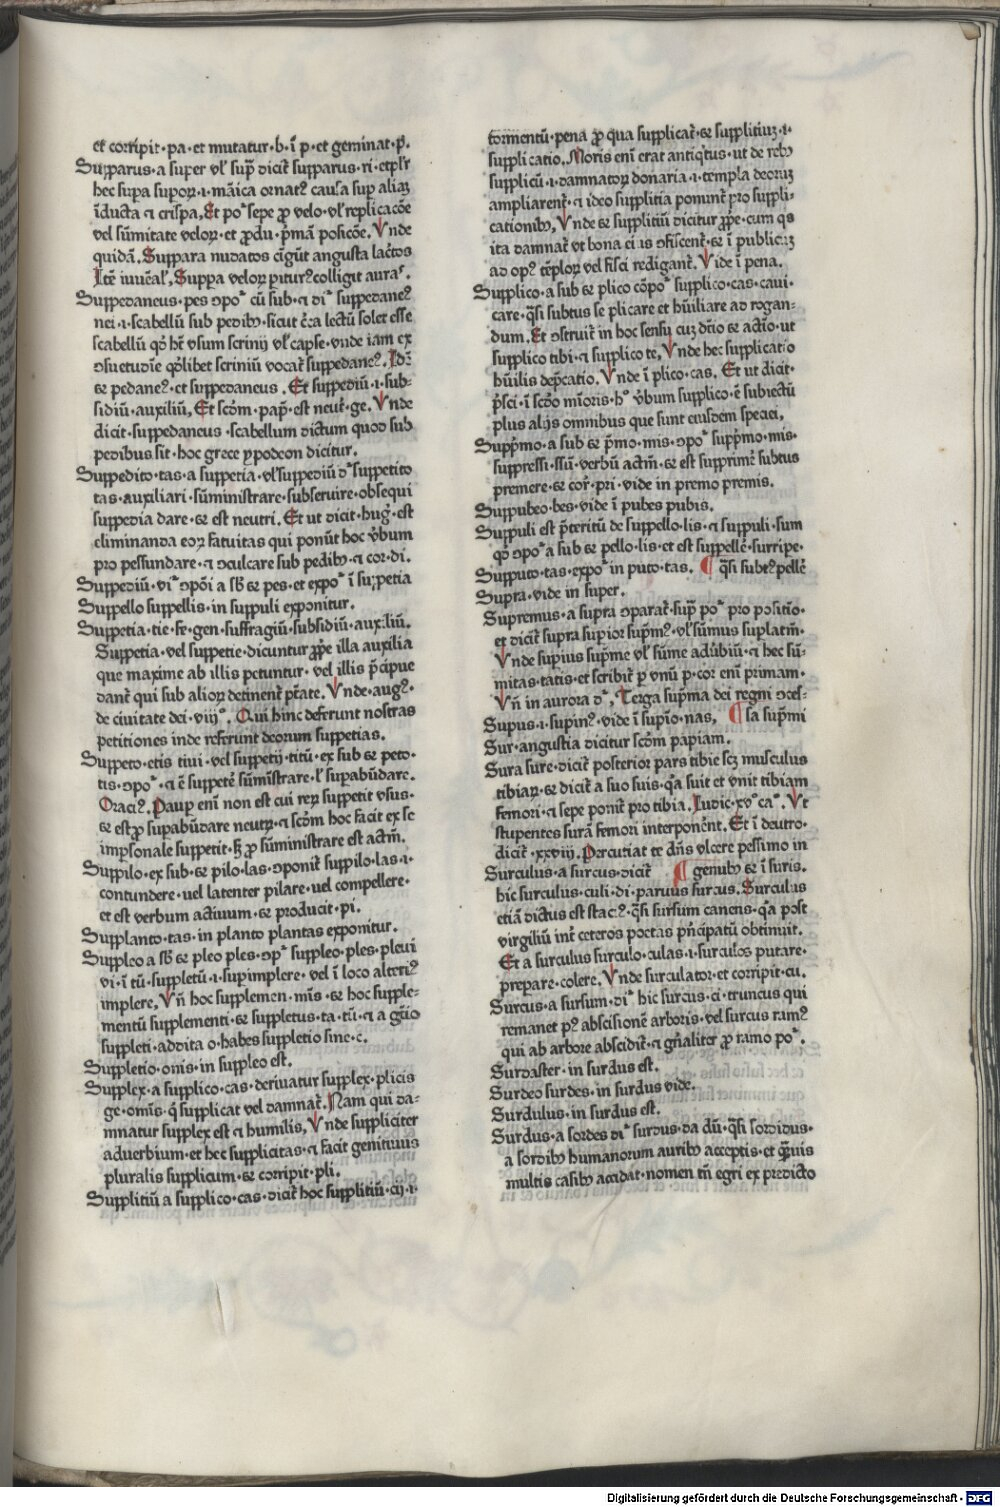 et corripit·pa·et mutatur·b·ī p·et geminat·p̄·
Supparus·a super vl' sup̄ dicit᷑ supparus·ri·et pl'r
hec supa supoꝝ·i·māica ornat᷑ causa sup aliaꝫ
īducta ⁊ crispa, Et poᷓ sepe ꝓ velo·vl' replicacōe
vel sūmitate veloꝝ·et ꝓdu·p̄mā posicōe. Vnde
quidā. Suppara nudatos cīgūt angusta lac̄tos
Itē iuuēal', Suppa veloꝝ pitur᷒ colligit auraſ.
Suppedaneus·pes ꝯpoᷓ cū sub·⁊ diᷓ suppedane᷒
nei·i·scabellū sub pedibꝫ·sicut c̄ca lectū solet esse
scabellū qd̓ hr̄ vsum scrinij vl' capse·vnde iam ex
ꝯsuetudīe qd̓libet scriniū vocat᷑ suppedane᷒. Idē
ꝫ pedane᷒·et suppedaneus. Et suppediū·i·sub-
sidiū·auxiliū, Et scd̄m·pap̄·est neut᷑·ge. Vnde
dicit·suppedaneus·scabellum dictum quod sub
pedibus sit·hoc grece ypodeon dicitur.
Suppedito·tas·a suppetia·vl' suppediū dᷓ suppetito
tas·auxiliari·sūministrare·subseruire·obsequi
suppedia dare·ꝫ est neutri. Et ut dicit·hug᷒·est
eliminanda eoꝝ fatuitas qui ponūt hoc v̓bum
pro pessundare·⁊ ꝯculcare sub pedibꝫ·⁊ cor·di.
Suppediū·viᷓ ꝯpōi a sb̄ ꝫ pes·et expoᷓ ī suppetia
Suppello suppellis·in suppuli exponitur.
Suppetia·tie·fe᷑·gen·suffragiū·subsidiū·auxiliū.
Suppetia·vel suppetie·dicuntur ꝓp̄e illa auxilia
que maxime ab illis petuntur·vel illis p̄cipue
dant᷑ qui sub alioꝝ detinent᷑ p̄tate. Vnde·aug᷒·
de ciuitate dei·viij°. Qui hinc deferunt nostras
petitiones inde referunt deorum suppetias.
Suppeto·etis tiui·vel suppetij·titū·ex sub ꝫ peto·
tis·ꝯpoᷓ·⁊ ē suppete᷑ sūmīstrare·l' supabūdare.
Oraci᷒. Paup enī non est cui reꝝ suppetit vsus·
ꝫ est ꝓ supabūdare neutꝝ·⁊ scd̄m hoc facit ex se
impsonale suppetit·sꝫ ꝓ sūministrare est actīm.
Suppilo·ex sub·ꝫ pilo·las·ꝯponit᷑ suppilo·las·i·
contundere·uel latenter pilare·uel compellere·
et est verbum actiuum·ꝫ producit·pi.
Supplanto·tas·in planto plantas exponitur.
Suppleo a sb̄ ꝫ pleo ples·ꝯpᷓ suppleo·ples·pleui
vi·ī tū·suppletū·i·supimplere·vel ī loco alteri᷒
implere, Vn̄ hoc supplemen·mīs·ꝫ hoc supple-
mentū supplementi·ꝫ suppletus·ta·tū·⁊ a gtīo
suppleti·addita o·habes suppletio sine·c.
Suppletio·onis·in suppleo est.
Supplex·a supplico·cas·deriuatur supplex·plicis
ge·omīs·q̄ supplicat vel damnat᷑. Nam qui da-
mnatur supplex est ⁊ humilis, Vnde suppliciter
aduerbium·et hec supplicitas·⁊ facit genitiuus
pluralis supplicum·ꝫ corripit·pli.
Supplitiū a supplico·cas·dicit᷑ hoc supplitiū·cij·i·
tormentū·pena ꝓ qua supplicat᷑·ꝫ supplitiuꝫ·i·
supplicatio. Moris enī erat antiq̓tus·ut de rebꝫ
supplicū·i·damnatoꝝ donaria·i·templa deoruꝫ
ampliarent᷑·⁊ ideo supplitia ponunt᷑ pro suppli-
cationibꝫ, Vnde ꝫ supplitiū dicitur ꝓp̄e·cum qs
ita damnat᷑ vt bona ei⁹ is ꝯfiscent᷑·ꝫ ī publicuꝫ
ad op᷒ tēploꝝ vel fisci redigant᷑. Vide ī pena.
Supplico·a sub ꝫ plico cōpoᷓ supplico·cas·caui·
care·qͣsi subtus se plicare et hūiliare ad rogan-
dum. Et ꝯstruit᷑ in hoc sensu cuꝫ dt̄io ꝫ actīo·ut
supplico tibi·⁊ supplico te, Vnde hec supplicatio
hūilis dep̄catio. Vnde ī plico·cas. Et ut dicit·
p̄sci·ī scd̄o mīoris·h° v̓bum supplico·ē subiectū
plus alijs omnibus que sunt eiusdem speciei,
Supp̄mo·a sub ꝫ p̄mo·mis·ꝯpoᷓ supp̄mo·mis·
suppressi·ssū·verbū actīm·ꝫ est supprime᷑ subtus
premere·ꝫ cor᷑·pri·vide in premo premis.
Suppubeo·bes·vide ī pubes pubis.
Suppuli est p̄teritū de suppello·lis·⁊ suppuli·sum
qd̓ ꝯpoᷓ a sub ꝫ pello·lis·et est suppelle᷑·surripe·
Supputo·tas·expoᷓ in puto·tas. ¶ qͣsi subt᷒ pelle᷑
Supra·vide in super.
Supremus·a supra ꝯparat᷑·sup̄ poᷓ pro positio·
et dicit᷑ supra supior sup̄m᷒·vl' sūmus suplatīm·
Vnde supius sup̄me vl' sūme adūbiū·⁊ hec sū-
mitas·tatis·et scribit᷑ p vnū p·cor᷑ enī primam·
Vn̄ in aurora dᷓ, Terga sup̄ma dei regni ꝯces-
Supus·i·supin᷒·vide ī supīo·nas, ¶ sa sup̄mi
Sur·angustia dicitur scd̄m papiam.
Sura sure·dicit᷑ posterior pars tibie scꝫ musculus
tibiaꝝ·ꝫ dicit᷑ a suo suis·qͣa suit et vnit tibiam
femori·⁊ sepe ponit᷑ pro tibia. Iudic·xv°caᷓ. Vt
stupentes surā femori interponēnt. Et ī deutro·
dicit᷑·xxviij. Percutiat te dn̄s vlcere pessimo in
Surculus·a surcus·dicit᷑ ¶ genubꝫ ꝫ ī suris.
hic surculus·culi·di·paruus surcus. Surculus
etiā dictus est stac᷒·qͣsi sursum canens·qͣa post
virgiliū int᷑ ceteros poetas p̄ncipatū obtinuit.
Et a surculus surculo·culas·i·surculos putare·
prepare·colere. Vnde surculator·et corripit·cu.
Surcus·a sursum·diᷓ hic surcus·ci·truncus qui
remanet p᷒ abscisionē arboris·vel surcus ram᷒
qui ab arbore abscidit᷑·⁊ gn̄aliter ꝓ ramo poᷓ.
Surdaster·in surdus est.
Surdeo surdes·in surdus vide.
Surdulus·in surdus est.
Surdus·a sordes diᷓ surdus·da dū·qͣsi sordidus·
a sordibꝫ humanorum auribꝫ acceptis·et qͣꝫuis
multis casibꝫ accidat·nomen tn̄ egri ex predicto
Digitalisierung gefördert durch die Deutsche Forschungsgemeinschaft - DFG